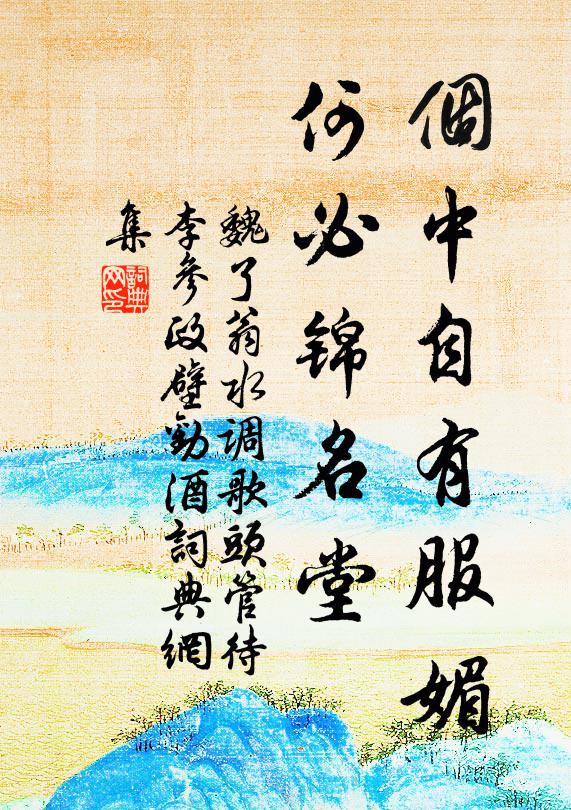 個中自有服媚
何必錦名堂
魏了翁水调歌頭管待
李參政壁勸酒詞典網
集
詞典
网印